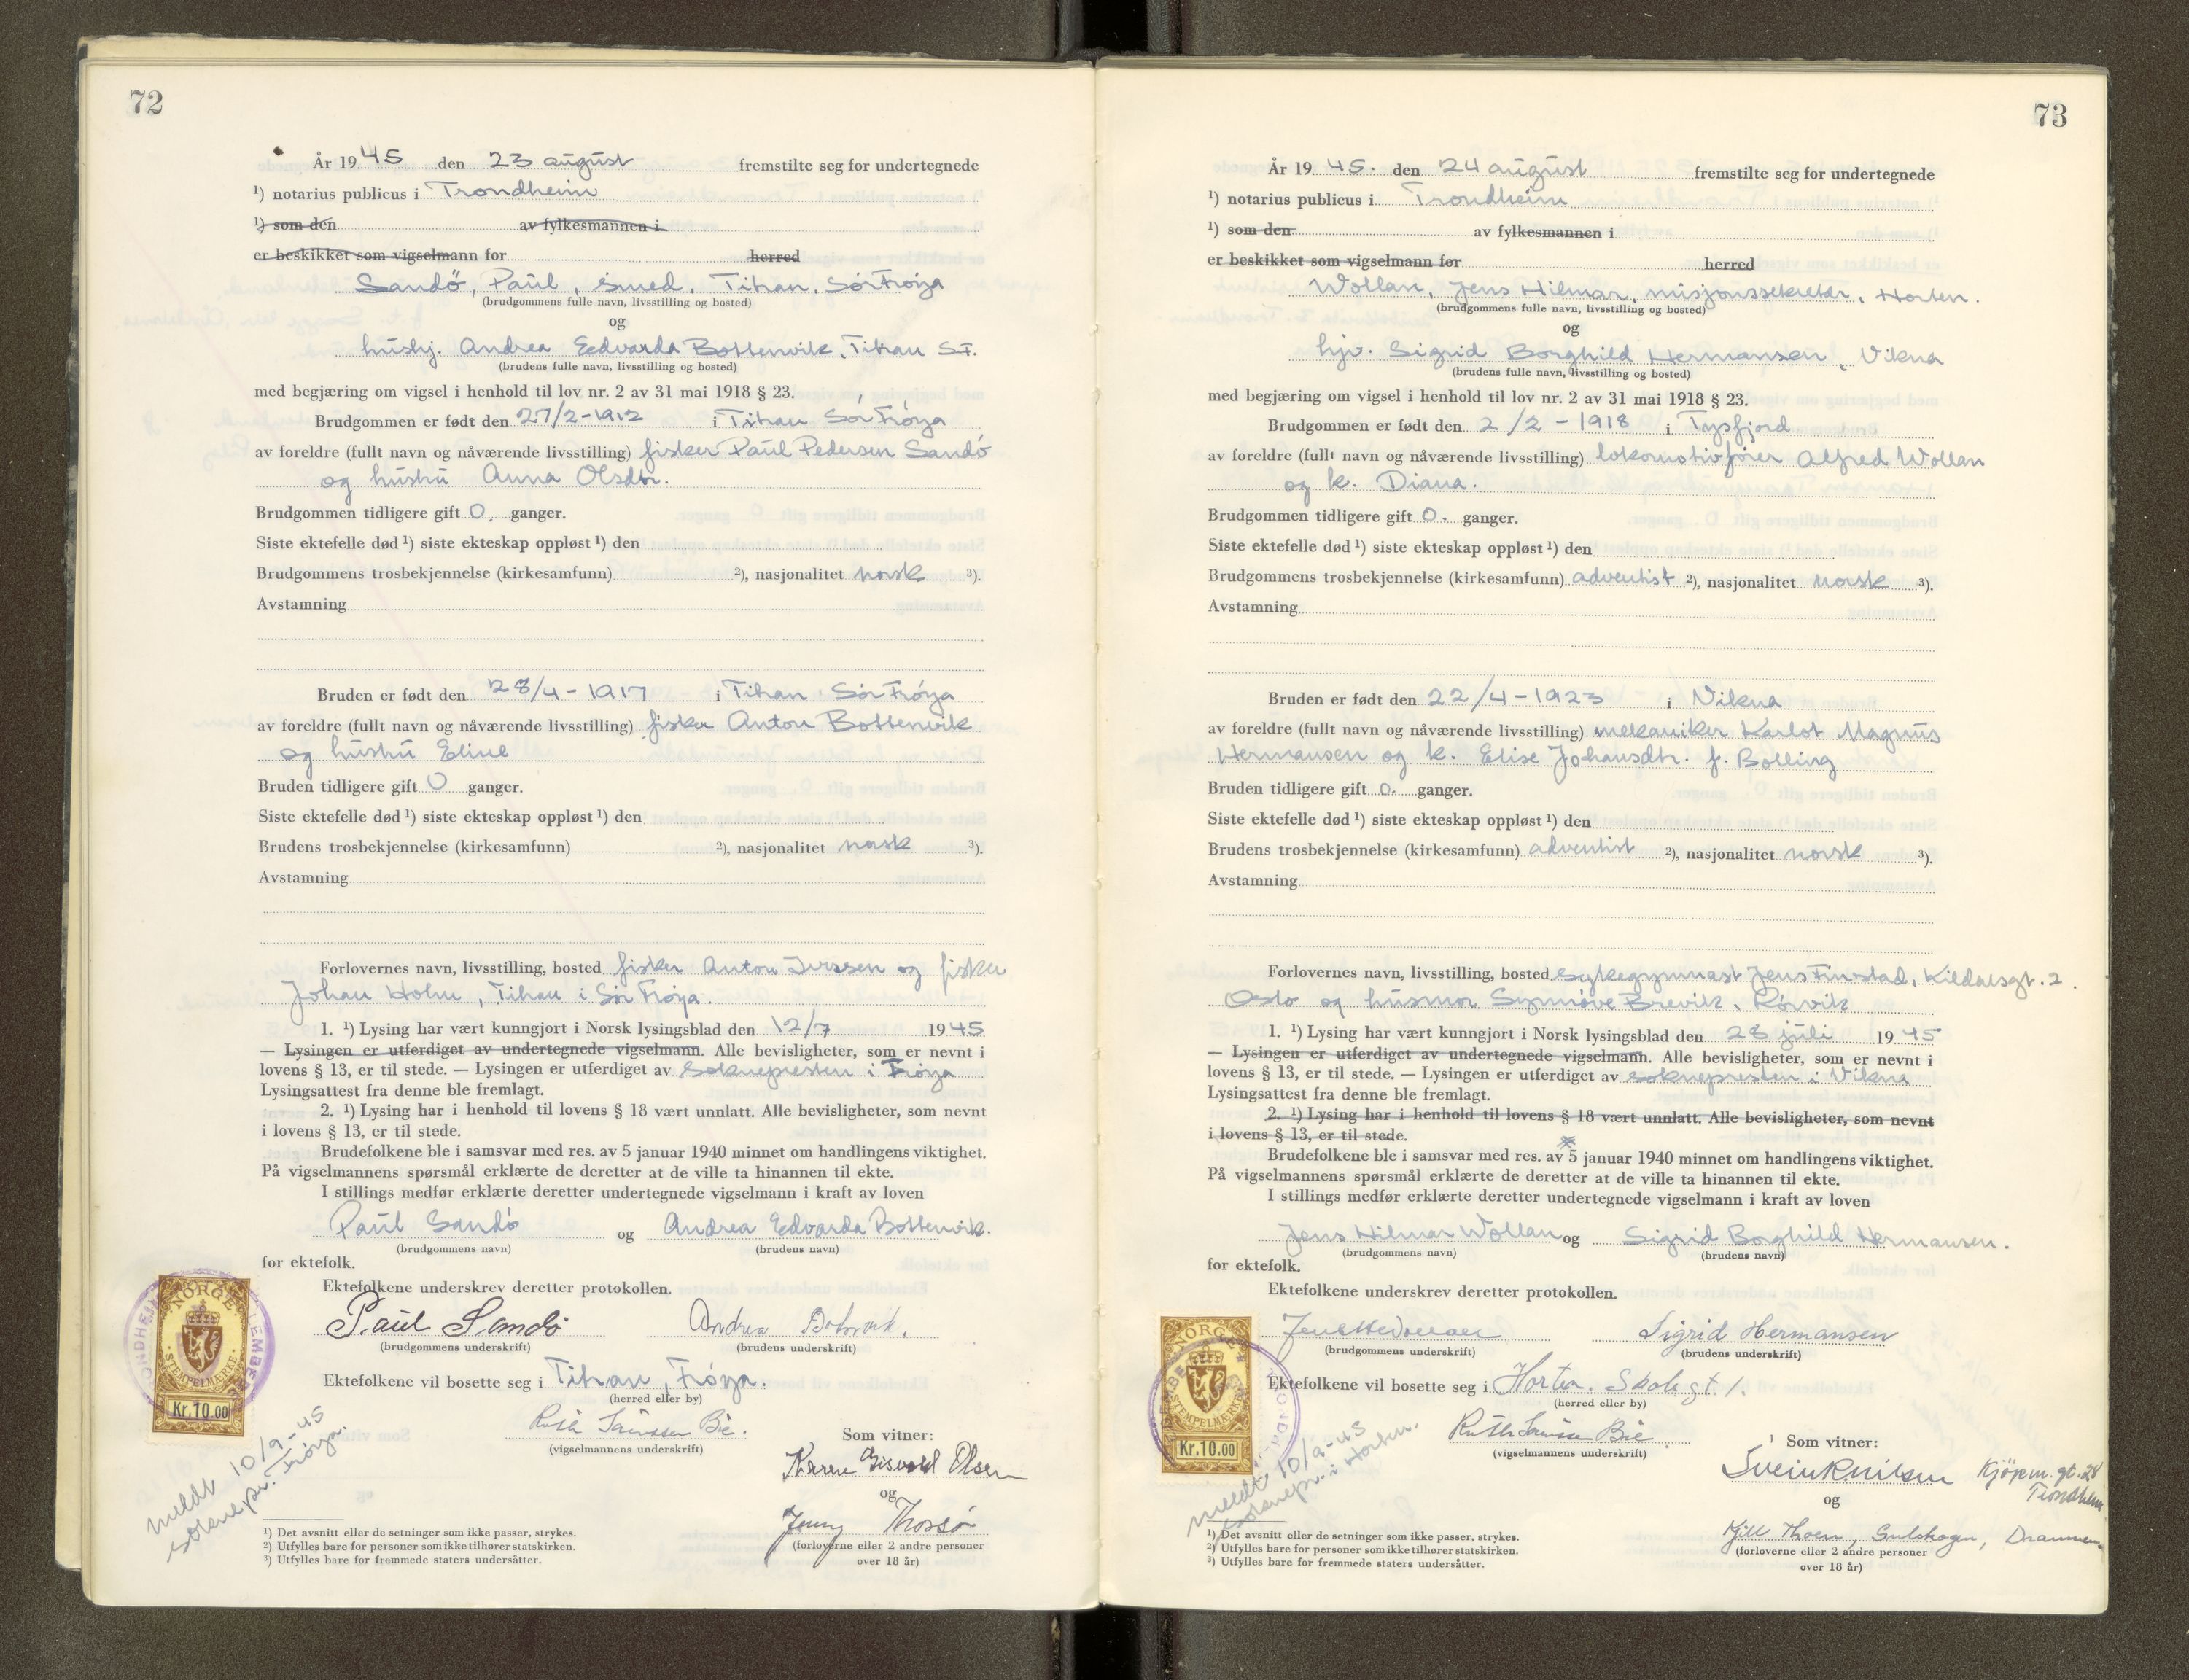 72
År 19 45 den 23 august fremstilte seg for undertegnede
¹) notarius publicus i Trondheim
¹) som den av fylkesmannen i
er beskikket som vigselmann for herred
Sandö, Paul, smed, Titran, Sör Fröya
(brudgommens fulle navn, livsstilling og bosted)
og
hushj. Andrea Edvarda Bottenvik, Titran S.F.
(brudens fulle navn, livsstilling og bosted)
med begjæring om vigsel i henhold til lov nr. 2 av 31 mai 1918 § 23.
Brudgommen er født den 27/2-1912 i Titran Sör Fröya
av foreldre (fullt navn og nåværende livsstilling) fisker Paul Pedersen Sandö
og hustru Anna Olsdtr.
Brudgommen tidligere gift 0. ganger.
Siste ektefelle død ¹) siste ekteskap oppløst ¹) den
Brudgommens trosbekjennelse (kirkesamfunn) ²), nasjonalitet norsk ³).
Avstamning
Bruden er født den 28/4-1917 i Titran Sör Fröya
av foreldre (fullt navn og nåværende livsstilling) fisker Anton Bottenvik
og hustru Eline
Bruden tidligere gift 0 ganger.
Siste ektefelle død ¹) siste ekteskap oppløst ¹) den
Brudens trosbekjennelse (kirkesamfunn) ²), nasjonalitet norsk ³).
Avstamning
Forlovernes navn, livsstilling, bosted fisker Anton Iverssen og fisker
Johan Holm, Titran i Sör Fröya.
1. ¹) Lysing har vært kunngjort i Norsk lysingsblad den 12/7 1945
— Lysingen er utferdiget av undertegnede vigselmann. Alle bevisligheter, som er nevnt i
lovens § 13, er til stede. — Lysingen er utferdiget av soknepresten i Fröya
Lysingsattest fra denne ble fremlagt.
2. ¹) Lysing har i henhold til lovens § 18 vært unnlatt. Alle bevisligheter, som nevnt
i lovens § 13, er til stede.
Brudefolkene ble i samsvar med res. av 5 januar 1940 minnet om handlingens viktighet.
På vigselmannens spørsmål erklærte de deretter at de ville ta hinannen til ekte.
I stillings medfør erklærte deretter undertegnede vigselmann i kraft av loven
Paul Sandö og Andrea Edvarda Bottenvik.
(brudgommens navn) (brudens navn)
for ektefolk.
Ektefolkene underskrev deretter protokollen.
Paul Sandö Andrea
(brudgommens underskrift) (brudens underskrift)
Ektefolkene vil bosette seg i Titran, Fröya.
(herred eller by)
Bie.
(vigselmannens underskrift)
Som vitner:
Olsen
og
Jenny
(forloverne eller 2 andre personer
over 18 år)
NORGE
STEMPELMÆRKE
Kr. 10.00
meldt 10/9-45
soknepr. Fröya.
¹) Det avsnitt eller de setninger som ikke passer, strykes.
²) Utfylles bare for personer som ikke tilhører statskirken.
³) Utfylles bare for fremmede staters undersåtter.
73
År 19 45. den 24 august fremstilte seg for undertegnede
¹) notarius publicus i Trondheim
¹) som den av fylkesmannen i
er beskikket som vigselmann for herred
Wollan, Jens Hilmar, misjonssekretær, Horten.
(brudgommens fulle navn, livsstilling og bosted)
og
hjv. Sigrid Borghild Hermansen, Vikna
(brudens fulle navn, livsstilling og bosted)
med begjæring om vigsel i henhold til lov nr. 2 av 31 mai 1918 § 23.
Brudgommen er født den 2/2-1918 i Tysfjord
av foreldre (fullt navn og nåværende livsstilling) lokomotivförer Alfred Wollan
og k. Diana.
Brudgommen tidligere gift 0. ganger.
Siste ektefelle død ¹) siste ekteskap oppløst ¹) den
Brudgommens trosbekjennelse (kirkesamfunn) adventist ²), nasjonalitet norsk ³).
Avstamning
Bruden er født den 22/4-1923 i Vikna
av foreldre (fullt navn og nåværende livsstilling) mekaniker Karlot Magnus
Hermansen og k. Elise Johansdtr. f. Bolling
Bruden tidligere gift 0. ganger.
Siste ektefelle død ¹) siste ekteskap oppløst ¹) den
Brudens trosbekjennelse (kirkesamfunn) adventist ²), nasjonalitet norsk ³).
Avstamning
Forlovernes navn, livsstilling, bosted sykegymnast Jens Finstad, Kildalsgt. 2.
Oslo og husmor Synnöve Brevik, Rörvik
1. ¹) Lysing har vært kunngjort i Norsk lysingsblad den 28 juli 1945
— Lysingen er utferdiget av undertegnede vigselmann. Alle bevisligheter, som er nevnt i
lovens § 13, er til stede. — Lysingen er utferdiget av soknepresten i Vikna
Lysingsattest fra denne ble fremlagt.
2. ¹) Lysing har i henhold til lovens § 18 vært unnlatt. Alle bevisligheter, som nevnt
i lovens § 13, er til stede.
Brudefolkene ble i samsvar med res. av 5 januar 1940 minnet om handlingens viktighet.
På vigselmannens spørsmål erklærte de deretter at de ville ta hinannen til ekte.
I stillings medfør erklærte deretter undertegnede vigselmann i kraft av loven
Jens Hilmar Wollan og Sigrid Borghild Hermansen.
(brudgommens navn) (brudens navn)
for ektefolk.
Ektefolkene underskrev deretter protokollen.
Sigrid Hermansen
(brudgommens underskrift) (brudens underskrift)
Ektefolkene vil bosette seg i Horten. Skolegt. 1.
(herred eller by)
Bie.
(vigselmannens underskrift)
Som vitner:
Svein Knutsen Kjöpm. gt. 28
Trondheim
og
Kjell Thoen, Gulskogen, Drammen
(forloverne eller 2 andre personer
over 18 år)
NORGE
STEMPELMÆRKE
Kr. 10.00
meldt 10/9-45
soknepr. i Horten.
¹) Det avsnitt eller de setninger som ikke passer, strykes.
²) Utfylles bare for personer som ikke tilhører statskirken.
³) Utfylles bare for fremmede staters undersåtter.